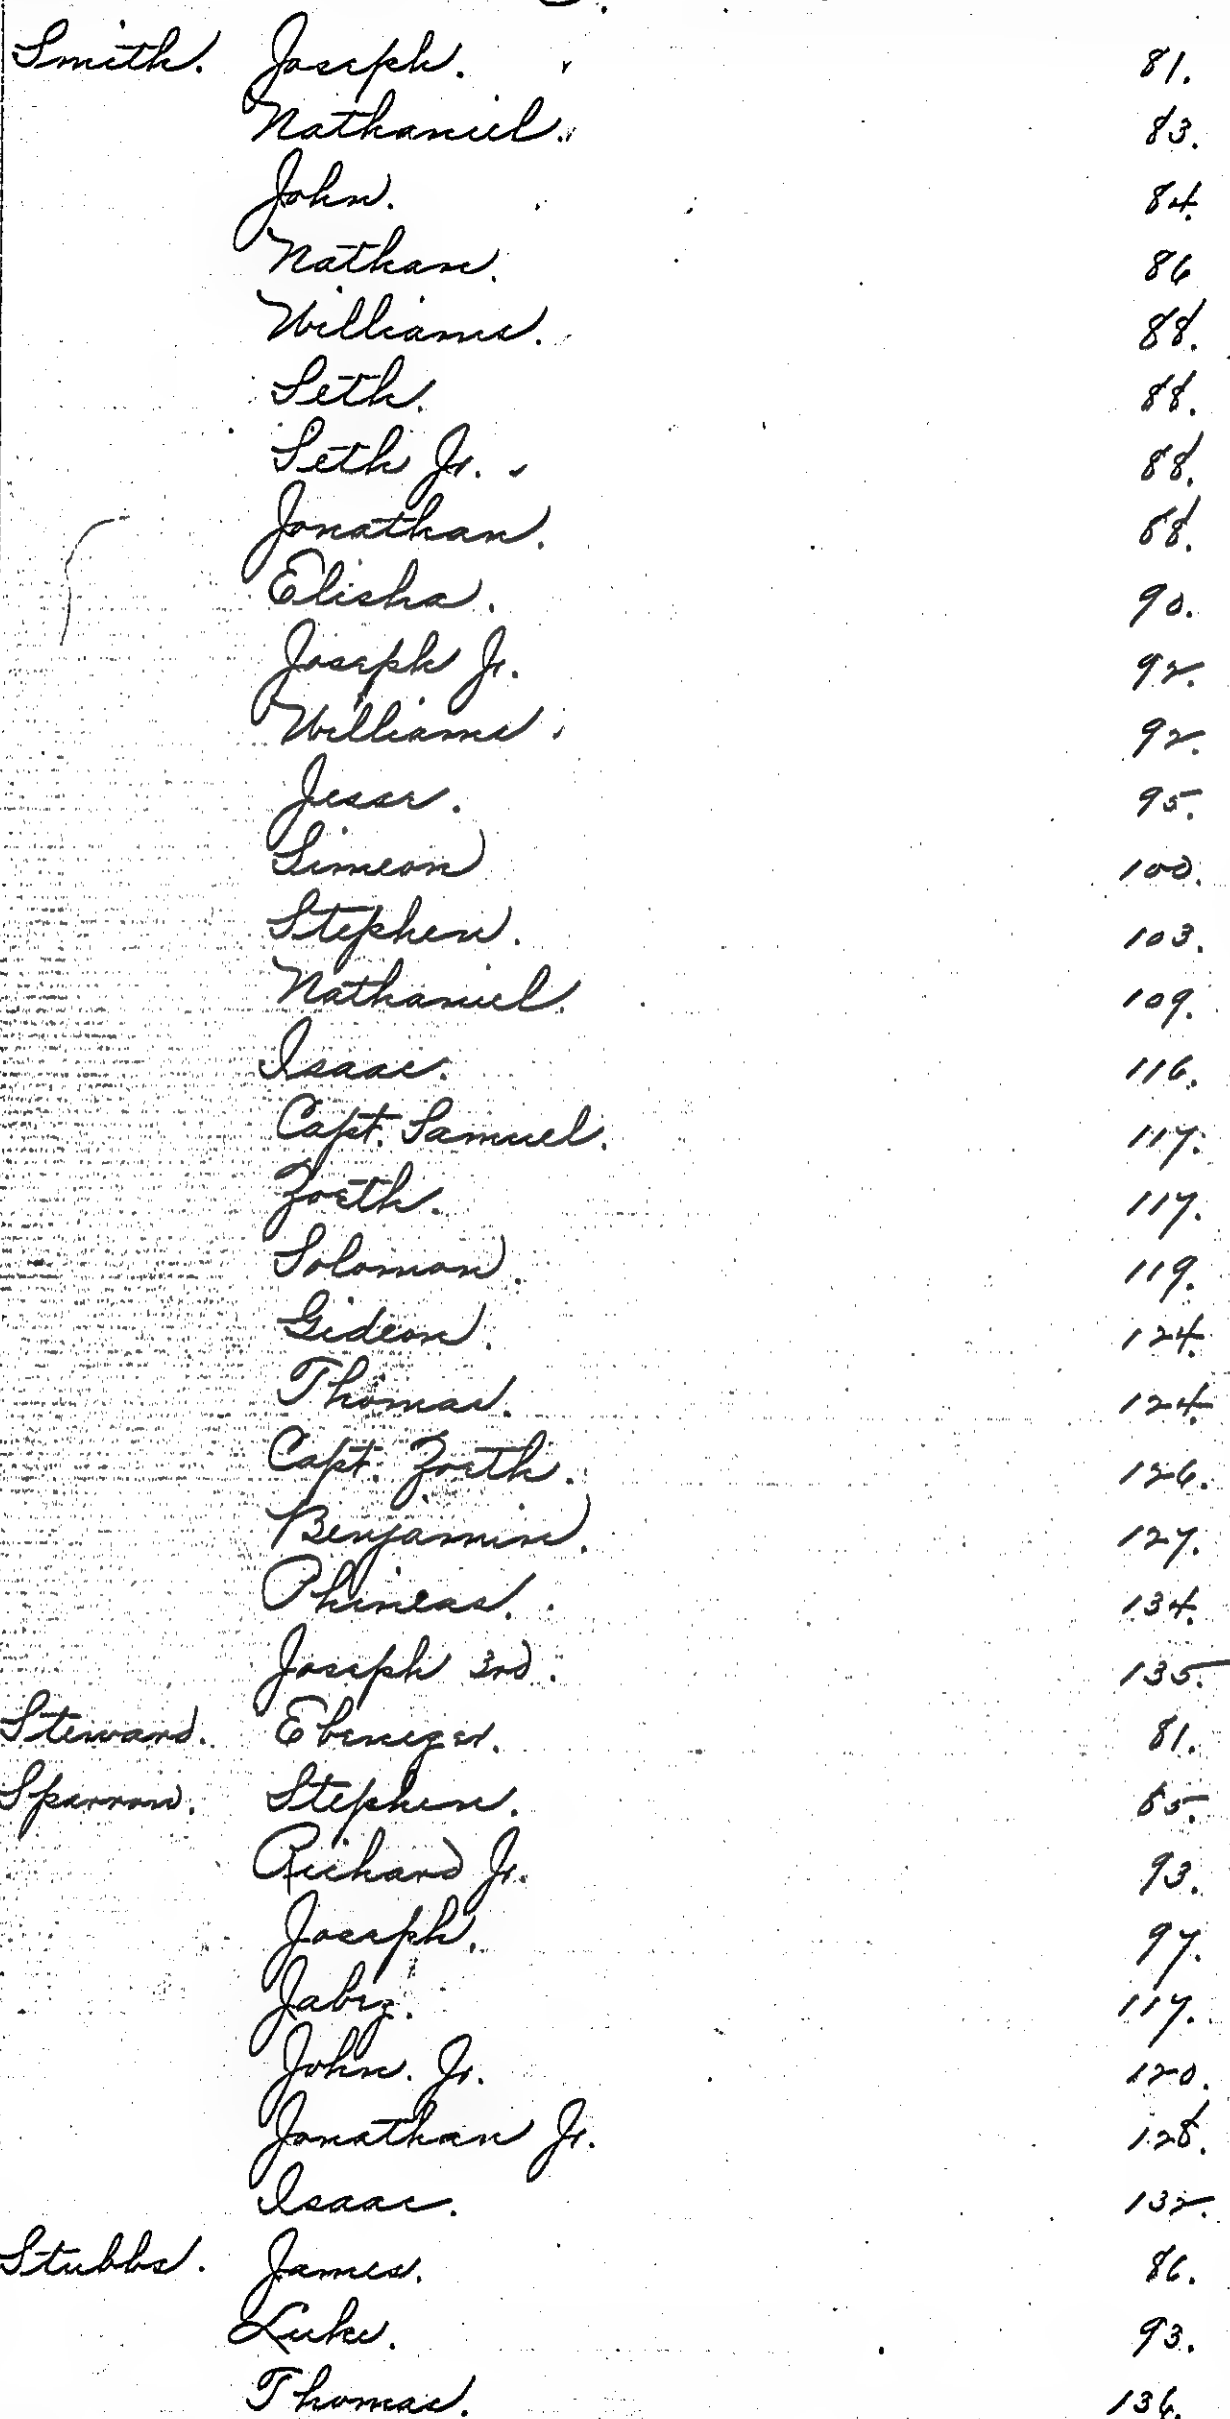 Smith. Joseph. 81.
Nathaniel. 83.
John. 84.
Nathan. 86
William. 88.
Seth. 88.
Seth Jr. 88.
Jonathan. 88.
Elisha. 90.
Joseph Jr. 92.
William. 92.
Jesse. 95.
Simeon 100.
Stephen. 103.
Nathaniel. 109.
Isaac. 116.
Capt. Samuel. 117.
Zoeth. 117.
Solomon. 119.
Gideon. 124.
Thomas. 124.
Capt. Zoeth. 126.
Benjamin. 127.
Phineas. 134.
Joseph 3rd. 135.
Steward. Ebenezer. 81.
Sparrow. Stephen. 85.
Richard Jr. 93.
Joseph. 97.
Jabez. 117.
John. Jr. 120.
Jonathan Jr. 128.
Isaac. 132.
Stubbs. James. 86.
Luke. 93.
Thomas. 136.